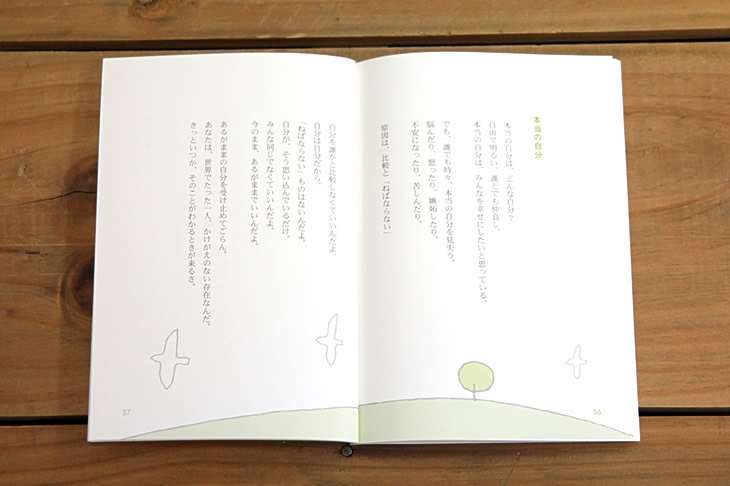 本当の自分
本当の自分は、どんな自分？
自由で明るい、誰とでも仲良し。
本当の自分は、みんなを幸せにしたいと思っている。
でも、誰でも時々、本当の自分を見失う。
悩んだり、怒ったり、嫉妬したり。
不安になったり、苦しんだり。
原因は、比較と「ねばならない」
36
自分を誰かと比較しなくていいんだよ。
自分は自分だから。
「ねばならない」ものはないんだよ。
自分が、そう思い込んでいるだけ。
みんな同じでなくていいんだよ。
今のまま、あるがままでいいんだよ。
あるがままの自分を受け止めてごらん。
あなたは、世界でたった一人、かけがえのない存在なんだ。
きっといつか、そのことがわかるときが来るさ。
37